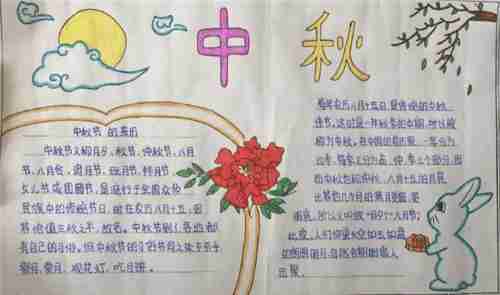 中秋
中秋节的来历
中秋节又称月夕、秋节、仲秋节、八月
节、八月会、追月节、玩月节、拜月节
女儿节或团圆节,是流行于全国众多
民族中的传统节日,时在农历八月十五;因
其恰值三秋之半,故名。中秋节到了各地都
有自己的习俗。但中秋节的主
祭月、赏月、观花灯、吃月饼。
每年农历八月十五日,是传统的中秋
佳节。这时是一年秋季的中期,所以被
称为中秋。在中国的农历里,一年分为
四季,每季又分为孟、仲、季三个部分,因
而中秋也称仲秋。八月十五的月亮
比其他几个月的满月更圆,更
明亮,所以又叫做"月夕""八月节"。
此夜,人们仰望天空如玉如盘
的朗朗明月,自然会期盼家人
团聚。